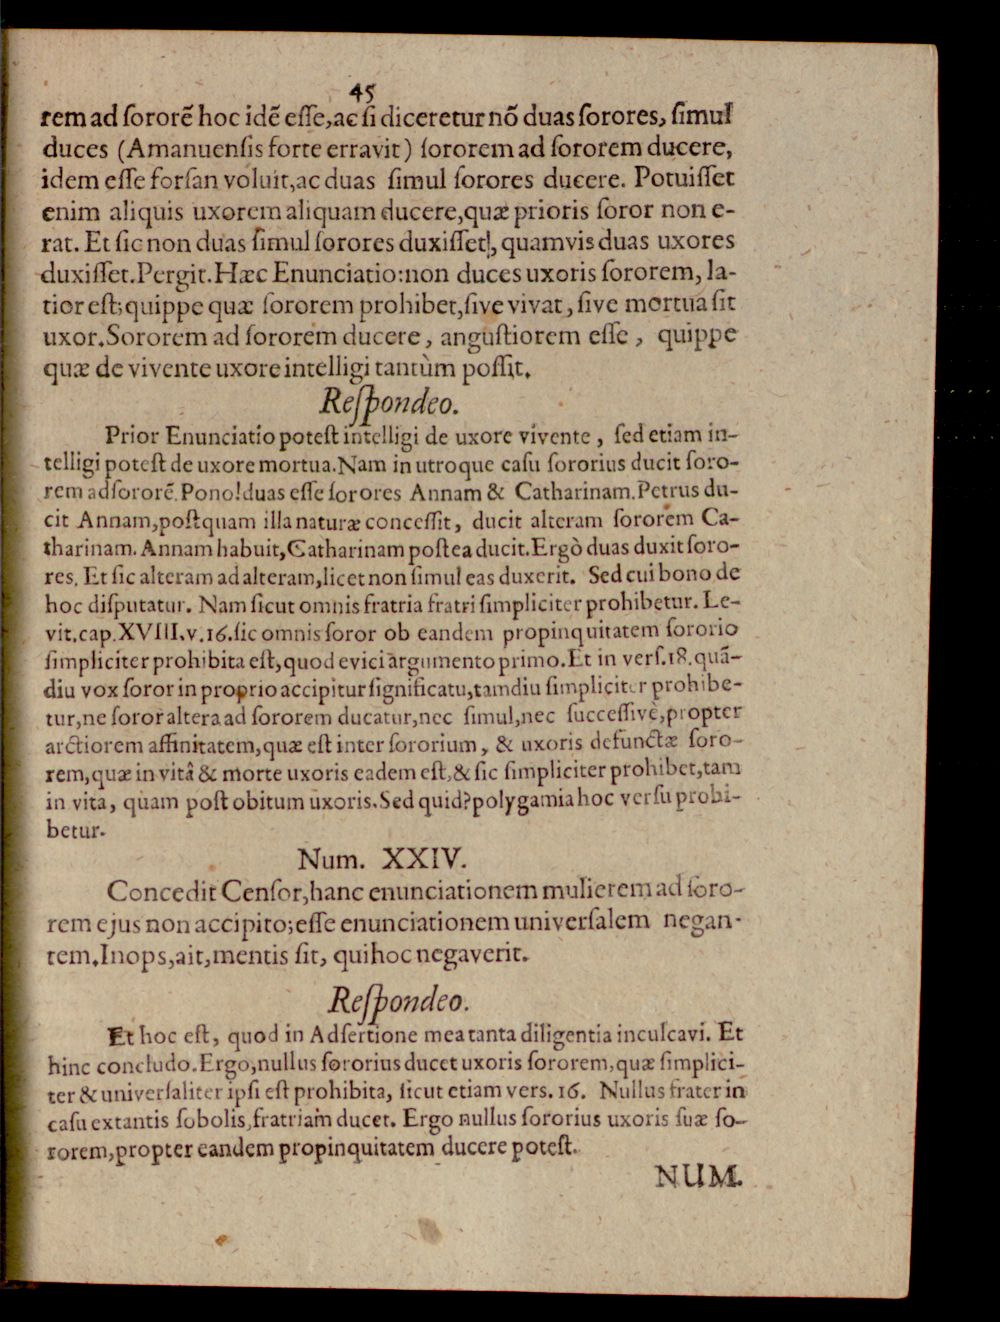 45
rem ad sororē hoc idē esse, ac si diceretur nō duas sorores, simul
duces (Amanuensis forte erravit) sororem ad sororem ducere,
idem esse forsan voluit, ac duas simul sorores ducere. Potuisset
enim aliquis uxorem aliquam ducere, quæ prioris soror non e-
rat. Et sic non duas simul sorores duxisset!, quamvis duas uxores
duxisset. Pergit. Hæc Enunciatio: non duces uxoris sororem, la-
tior est; quippe quæ sororem prohibet, sive vivat, sive mortua sit
uxor. Sororem ad sororem ducere, angustiorem esse, quippe
quæ de vivente uxore intelligi tantùm possit.
Respondeo.
Prior Enunciatio potest intelligi de uxore vivente, sed etiam in-
telligi potest de uxore mortua. Nam in utroque casu sororius ducit soro-
rem ad sororē. Pono! duas esse sorores Annam & Catharinam. Petrus du-
cit Annam, postquam illa naturæ concessit, ducit alteram sororem Ca-
tharinam. Annam habuit, Catharinam postea ducit. Ergò duas duxit soro-
res. Et sic alteram ad alteram, licet non simul eas duxerit. Sed cui bono de
hoc disputatur. Nam sicut omnis fratria fratri simpliciter prohibetur. Le-
vit. cap. XVIII. v. 16. sic omnis soror ob eandem propinquitatem sororio
simpliciter prohibita est, quod evici argumento primo. Et in vers. 18. quā-
diu vox soror in proprio accipitur significatu, tamdiu simpliciter prohibe-
tur, ne soror altera ad sororem ducatur, nec simul, nec successivè, propter
arctiorem affinitatem, quæ est inter sororium, & uxoris defunctæ soro-
rem, quæ in vitâ & morte uxoris eadem est, & sic simpliciter prohibet, tam
in vita, quam post obitum uxoris. Sed quid? polygamia hoc versu prohi-
betur.
Num. XXIV.
Concedit Censor, hanc enunciationem mulierem ad soro-
rem ejus non accipito; esse enunciationem universalem negan-
tem. Inops, ait, mentis sit, qui hoc negaverit.
Respondeo.
Et hoc est, quod in Adsertione mea tanta diligentia inculcavi. Et
hinc concludo. Ergo, nullus sororius ducet uxoris sororem, quæ simplici-
ter & universaliter ipsi est prohibita, sicut etiam vers. 16. Nullus frater in
casu extantis sobolis, fratriam ducet. Ergo nullus sororius uxoris suæ so-
rorem, propter eandem propinquitatem ducere potest.
NUM.